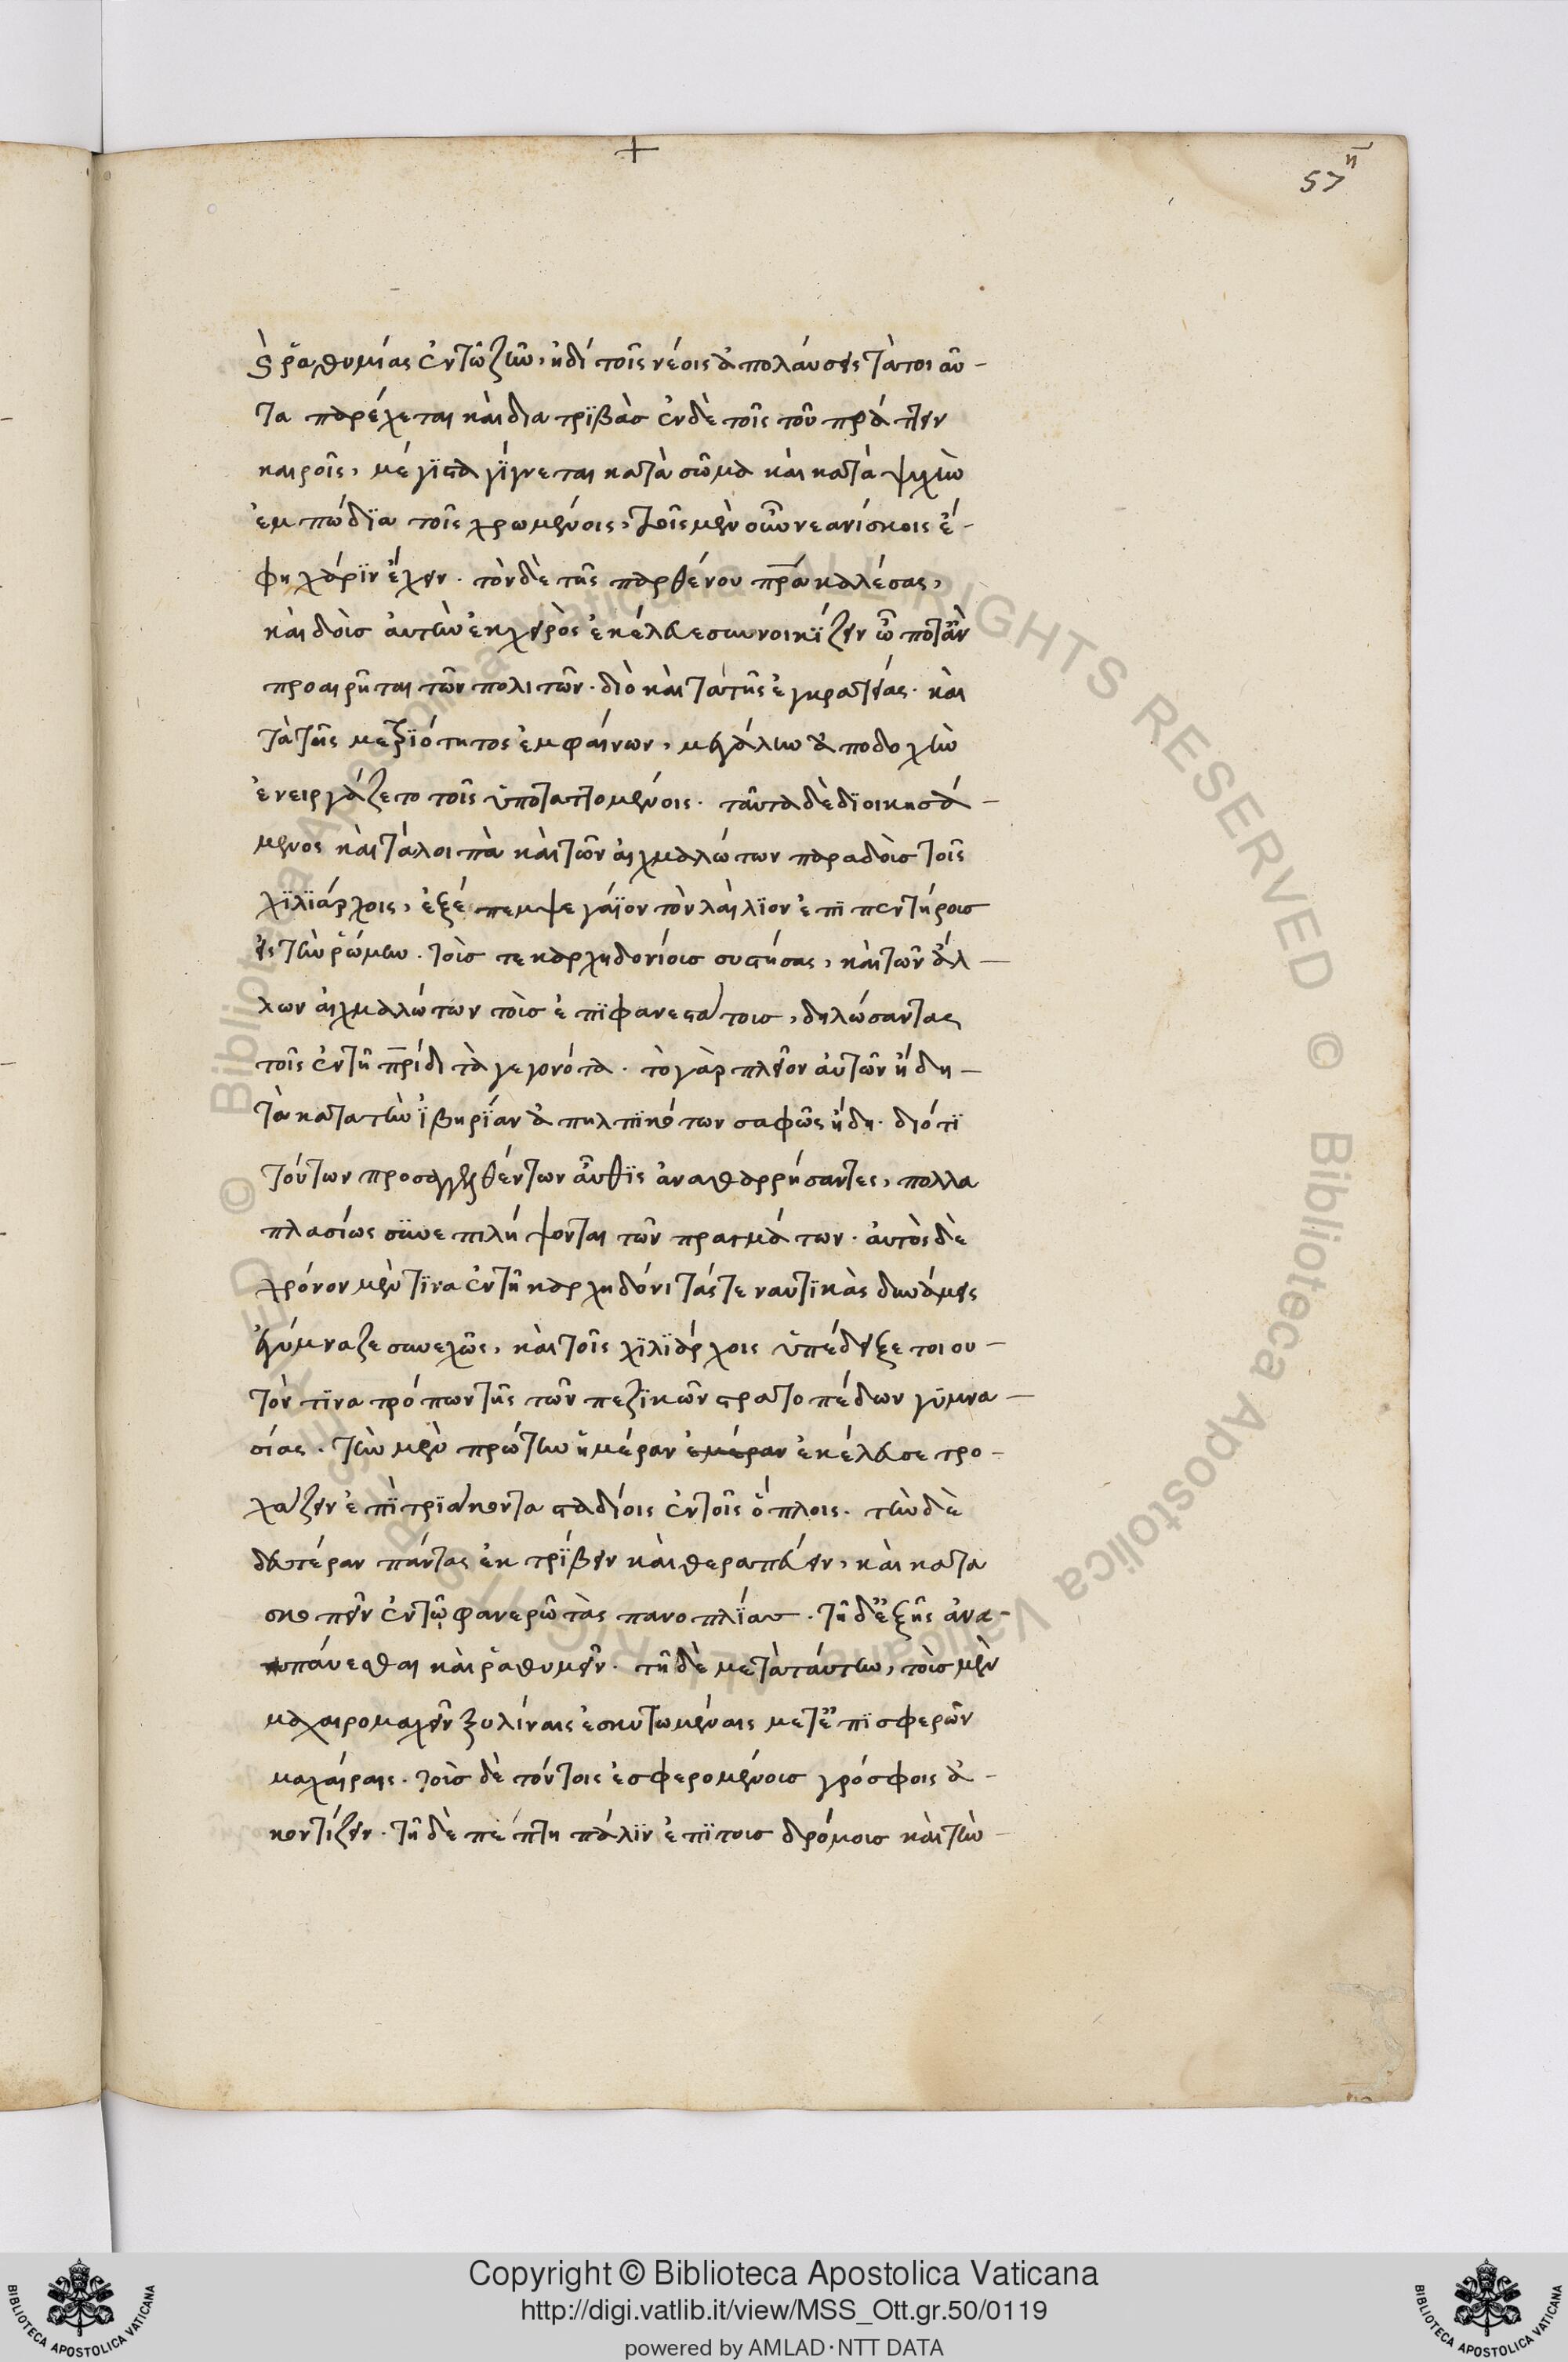 57 η
καὶ ῥαθυμίας ἐν τῷ ζῆν, ἡδί τοῖς νέοις ἀπολαύσεις τὰ τοι αὖ-
τα παρέχεται καὶ δια τριβὰσ ἐν δὲ τοῖς τοῦ πράττειν
καιροῖς, μέγϊστα γΐγνεται κατὰ σῶμα καὶ κατὰ ψυχὴν
ἐμπώδϊα τοῖς χρωμένοις, τοῖς μὲν οὖν νεανίσκοις ἔ-
φη χάρϊν ἔχειν. τὸν δὲ τῆς παρθένου πρα καλέσας,
καὶ δοὺσ ἀυτὴν ἐκ χειρὸς ἐκέλευε συνοικΐζειν ὧ ποτ' ἂν
προαιρῆται τῶν πολιτῶν. διὸ καὶ τὰ τῆς ἐγκρατείας. καὶ
τὰ τῆς μετρϊότητος ἐμφαίνων, μεγάλην ἀποδοχὴν
ἐνειργάζετο τοῖς ὑποταττομένοις. ταῦτα δὲ δϊοικησά-
μενος καὶ τὰ λοιπὰ καὶ τῶν αἰχμαλώτων παραδοὺσ τοῖς
χϊλϊάρχοις, ἐξέπεμψε γάϊον τὸν λαίλϊον ἐπὶ πεντήροισ
εἰς τὴν ῥώμην. τοὺσ τε καρχηδονίουσ συστήσας, καὶ τῶν ἄλ-
λων αἰχμαλώτων τοὺσ ἐπϊφανεστάτουσ, δηλώσαντας
τοῖς ἐν τῇ πρίδι τὰ γεγονότα. τὸ γὰρ πλεῖον ἀυτῶν ἤδη-
τὰ κατα τὴν ἰβηρΐαν ἀπηλπϊκότων σαφῶς ἤδη. διότϊ
τούτων προσαγγελθέντων αὖθϊς ἀναθαρρήσαντες, πολλα
πλασίως συνεπιλήψονται τῶν πραγμάτων. ἀυτὸς δὲ
χρόνον μέν τϊνα ἐν τῇ καρχηδόνι τάς τε ναυτϊκὰς δυνάμεις
ἐγύμναζε συνεχῶς, καὶ τοῖς χϊλϊάρχοις ὑπέδειξε τοιου-
τόν τϊνα τρόπων τῆς τῶν πεζϊκῶν στρατοπέδων γϋμνα-
σίας. τὴν μὲν πρώτην ἡμέραν ἐμέραν ἐκέλευσε τρο-
χάζειν ἐπὶ τρϊάκοντα σταδίοις ἐν τοῖς ὅπλοις. τὴν δὲ
δευτέραν πάντας ἐκτρΐβειν καὶ θεραπεύειν, καὶ κατα
σκοπεῖν ἐν τῷ φανερῷ τὰς πανοπλΐασ. τῇ δ' ἑξῆς ἀνα-
πάυεσθαι καὶ ῥαθυμεῖν. τῇ δὲ μετὰ τάυτην, τοὺσ μὲν
μαχαιρομαχεῖν ξυλίναις ἐσκυτωμέναις μετ' ἐπϊσφερῶν
μαχαίραις. τοὺσ δὲ τόντοις ἐσφερομένουσ γρόσφοις ἀ-
κοντίζειν. τῇ δὲ πέμπτη πάλϊν ἐπϊ τουσ δρόμουσ καὶ τὴν
Copyright © Biblioteca Apostolica Vaticana
http://digi.vatlib.it/view/MSS_Ott.gr.50/0119
powered by AMLAD·NTT DATA